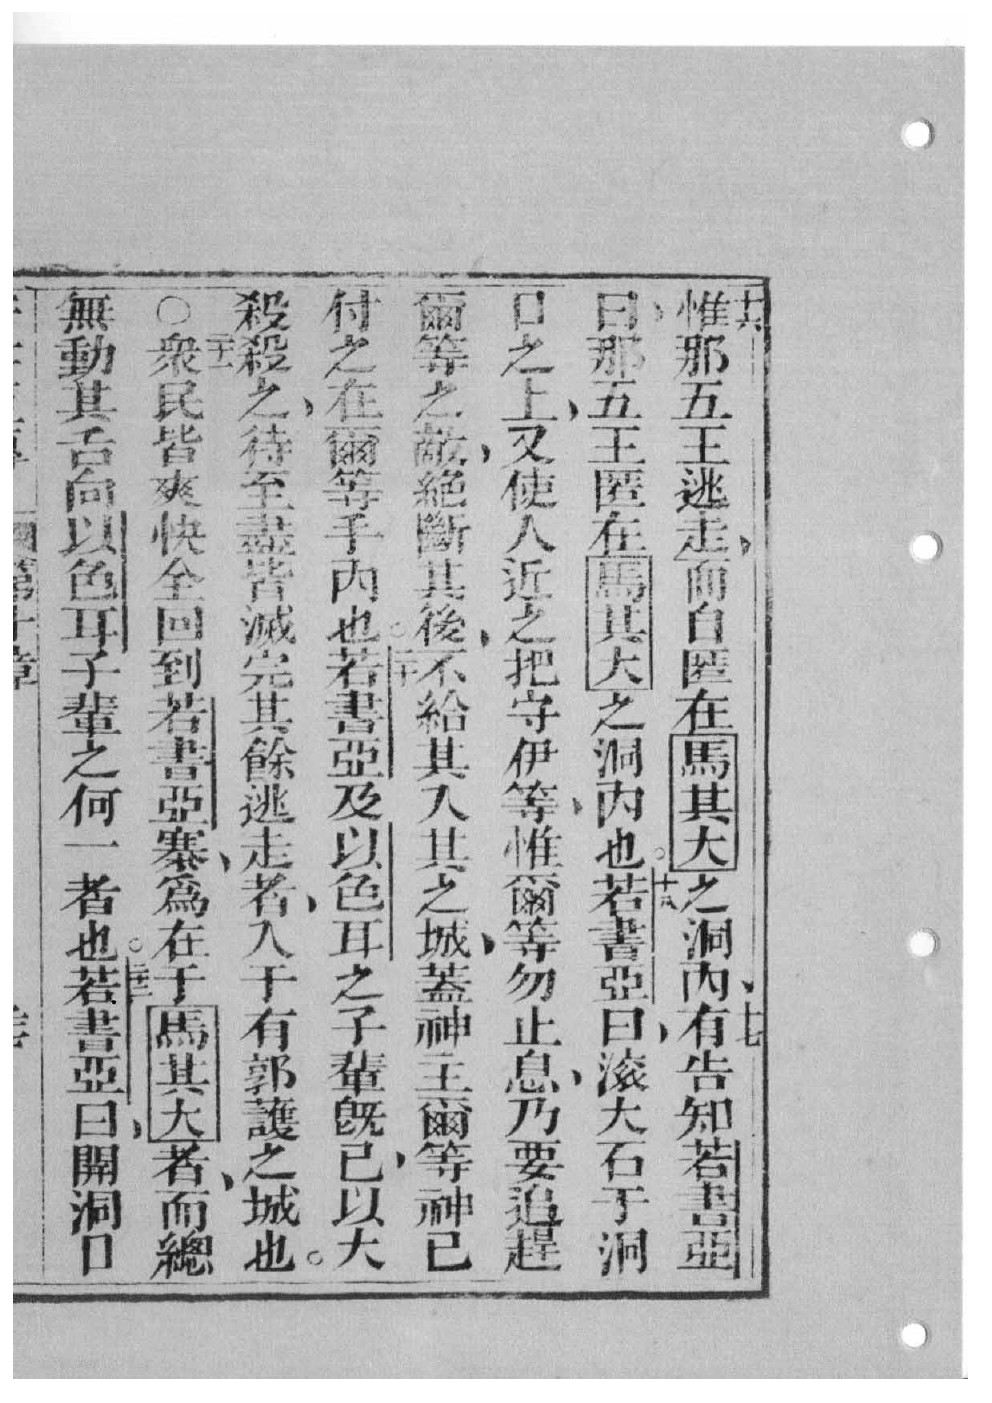 十六惟那五王逃走、而自匿在馬其大之洞內、十七有告知若書亞
曰、那五王匿在馬其大之洞內也。十八若書亞曰、滚大石于洞
口之上、又使人近之把守伊等、惟爾等勿止息、乃要追趕
爾等之敵、絕斷其後、不給其入其之城、蓋神主爾等神已
付之在爾等手內也。二十若書亞及以色耳之子輩旣已、以大
殺殺之、待至盡皆滅完、其餘逃走者、入于有郭護之城也。
○二十一衆民皆爽快全回到若書亞寨、爲在于馬其大者、而總
無動其舌向以色耳子輩之何一者也。二十二若書亞曰、開洞口
第十章